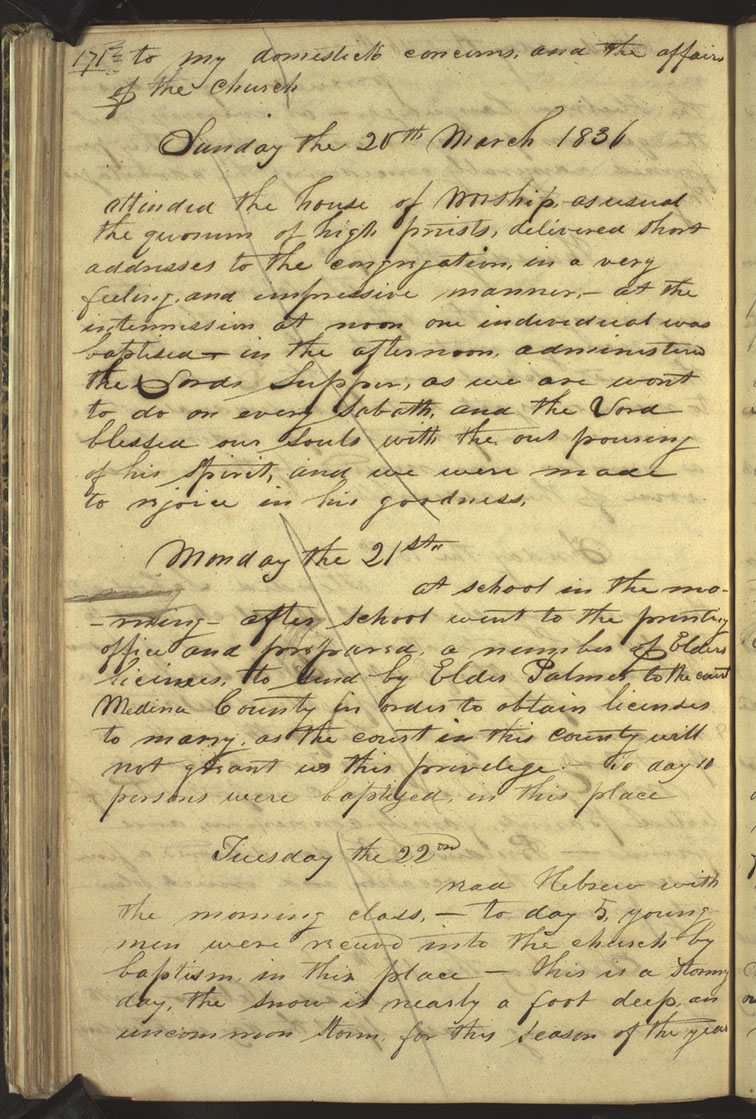 171 to my domestick concerns, and the affairs
of the church
Sunday the 20th March 1836
attended the house of Worship, as usual
the quorum of high priests, delivered short
addresses to the congregation, in a very
feeling, and impressive manner,— at the
intermission at noon one individual was
baptised — in the afternoon, administered
the Lords Supper, as we are wont
to do on every Sabath, and the Lord
blessed our Souls with the out pouring
of his Spirit, and we were made
to rejoice in his goodness,
Monday the 21st
at school in the mo-
-rning — after school went to the printing
office and prepared, a number of Elders
licinses, to send by Elder Palmer to the court
Medina County in order to obtain licenses
to marry, as the court in this county will
not grant us this privilege. — To day 10
persons were baptized, in this place
Tuesday the 22nd
read Hebrew with
the morning class,— to day 5, young
men were receivd into the church by
baptism, in this place — This is a Stormy
day, the snow is nearly a foot deep, an
uncommon storm, for this season of the year